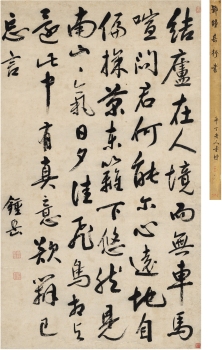 結廬在人境而無車馬
喧問君何能尔心遠地自
偏採菊東籬下悠然見
南山々氣日夕佳飛鳥相与
還此中有真意欲辯已
忘言
鍾岳